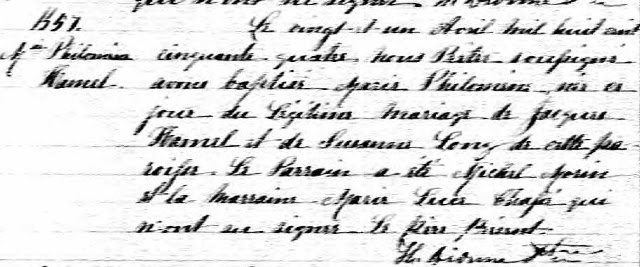 B57.
Mie Philomène
Hamel
Le vingt et un Avril mil huit cent
cinquante quatre nous Prêtre soussigné
avons baptisé Marie Philomène née ce
jour du légitime mariage de Jacques
Hamel et de Susanne Long de cette pa-
roisse. Le Parrain a été Michel Morin
et la Marraine Marie Luce qui
n'ont su signer Le père Présent
Ptre